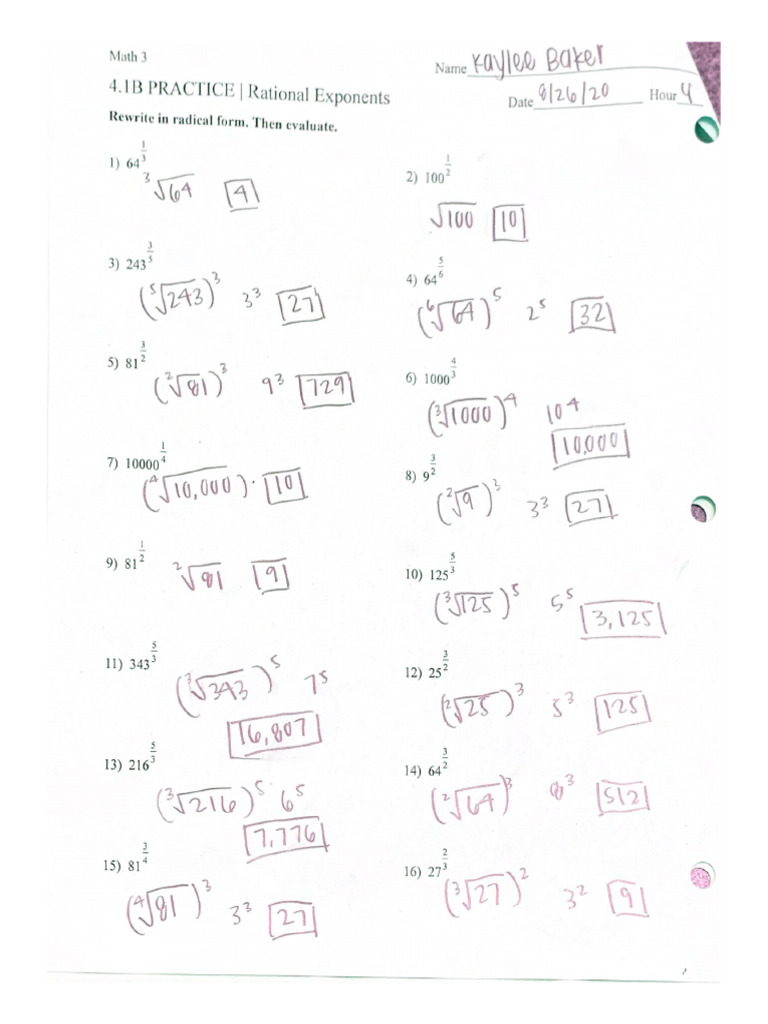 Math 3
Name Kaylee Baker
4.1B PRACTICE | Rational Exponents
Date 8/26/20 Hour 4
Rewrite in radical form. Then evaluate.
1) 64^(1/3)
³√64 4
2) 100^(1/2)
√100 10
3) 243^(3/5)
(⁵√243)³ 3³ 27
4) 64^(5/6)
(⁶√64)⁵ 2⁵ 32
5) 81^(3/2)
(²√81)³ 9³ 729
6) 1000^(4/3)
(³√1000)⁴ 10⁴
10,000
7) 10000^(1/4)
(⁴√10,000)· 10
8) 9^(3/2)
(²√9)³ 3³ 27
9) 81^(1/2)
²√81 9
10) 125^(5/3)
(³√125)⁵ 5⁵
3,125
11) 343^(5/3)
(³√343)⁵ 7⁵
16,807
12) 25^(3/2)
(²√25)³ 5³ 125
13) 216^(5/3)
(³√216)⁵ 6⁵
7,776
14) 64^(3/2)
(²√64)³ 8³ 512
15) 81^(3/4)
(⁴√81)³ 3³ 27
16) 27^(2/3)
(³√27)² 3² 9